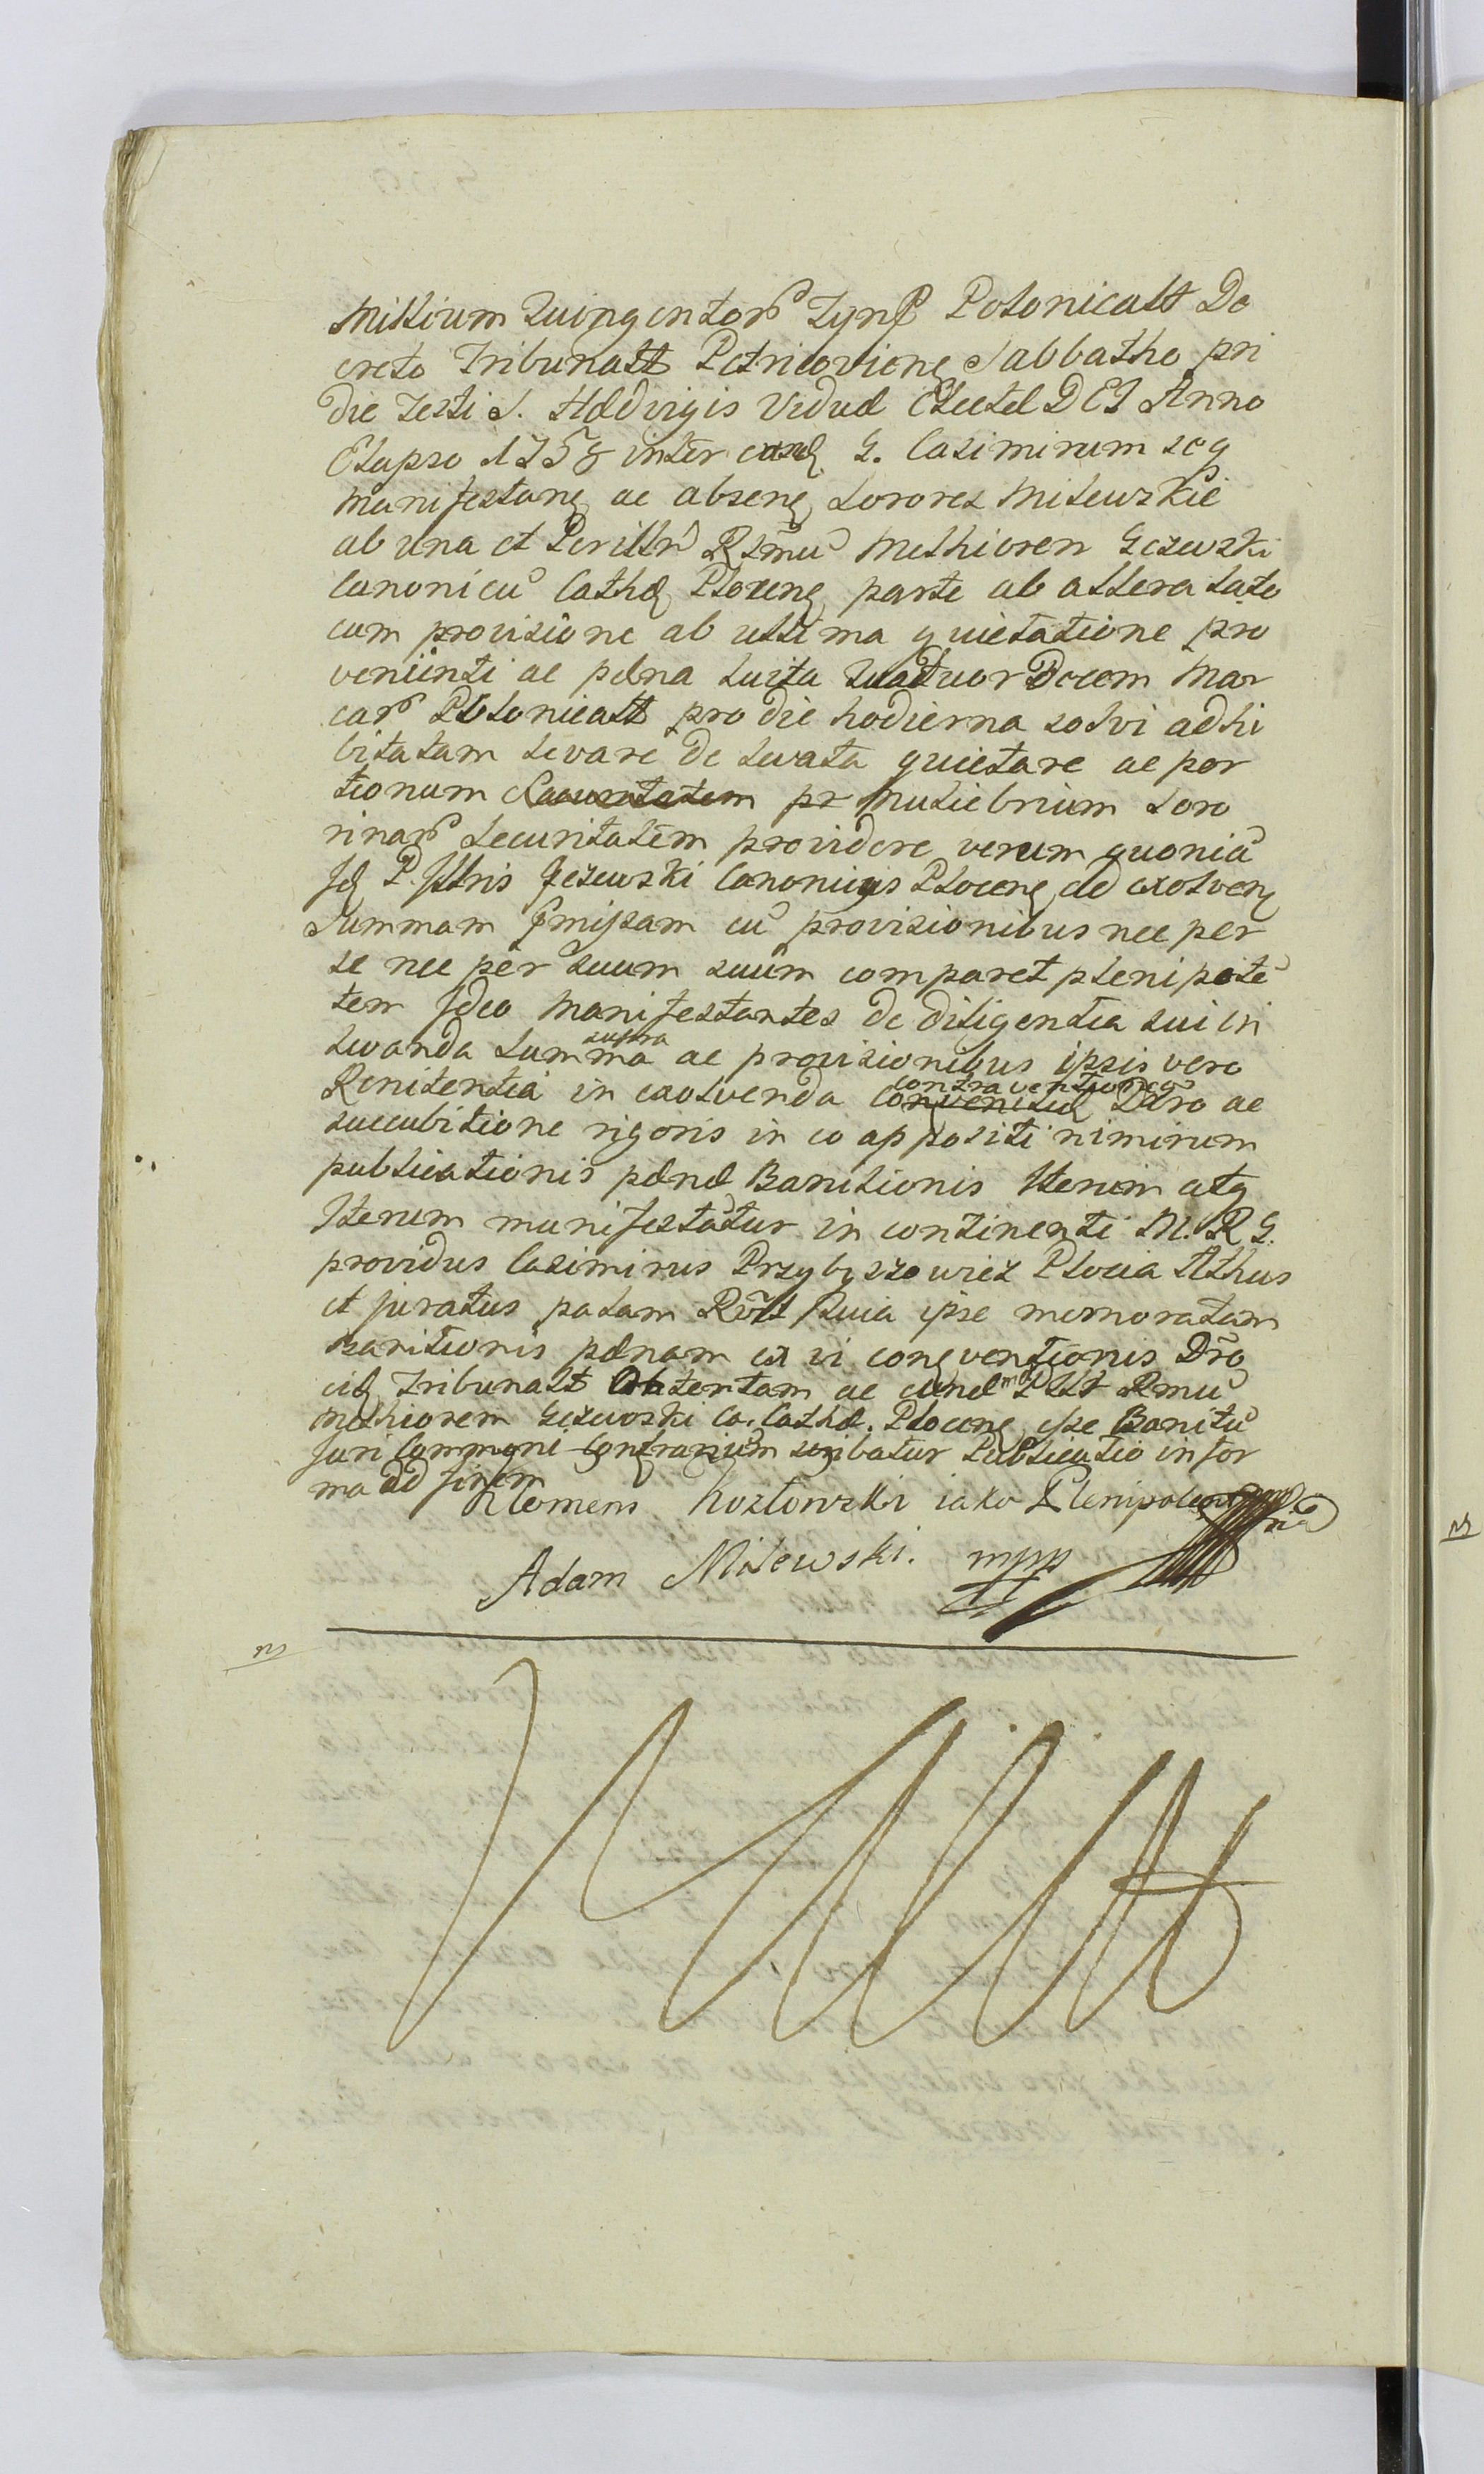 Millium Quingentorũ Tynf Polonicall De
creto Tribunall Petricovien Sabbatho pri
die Festi S. Hedvigis Viduæ Electæ DEI Anno
Elapso 1758 inter eosd G. Casimirum seq
manifestan ac absen Sorores Milewskie
ab una et Perillrẽ Rsmũ Melhioren Gezewski
Canonicũ Cathed Plocen parte ab altera lato
cum provisione ab ultima quietatione pro
venienti ac pæna luita Quatuor Decem Mar
carũ Polonicall pro die hodierna solvi adhi
bitatam levare de levata quietare ac por
tionum Securitatem pr Muliebrium Soro
rinarũ Securitatem providere verum quoniã
Id P. Illris Jezewski Canonicus Plocen ad exolven
Summam pmissam cũ provisionibus nec per
se nec per suum suum comparet plenipotẽ
tem Ideo Manifestantes de diligentia sui in
levanda Summa supra ac provisionibus ipsis vero
Renitentia in exolvenda contraventione Dcro ac
succubitione rigoris in eo appositi nimirum
publicationis pænæ Banitionis Iterum atq
Iterum manifestatur in continenti M. R G.
providus Casimirus Przybyszewicz Plocia Athus
et juratus palam Rvlt Quia ipse memoratam
Banitionis pænam ex vi conventionis Drõ
eid Tribunall Obtentam ac eund P Illr Rmũ
Melhiorem Gezewski Ca. Cathd. Plocen esse Banitũ
Juri Communi Contrarium scribatur Publicatio in for
ma ad finem
Klemens Kozłowski iako Plenipotent mpria
Adam Milewski. mpp